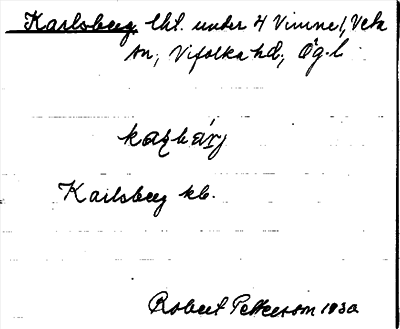 Karlsberg, lht. under 4 Vimne1, Vek
sn, Vifolka hd, Ög.l
Karlsberg kb.
Robert Petterson 1930